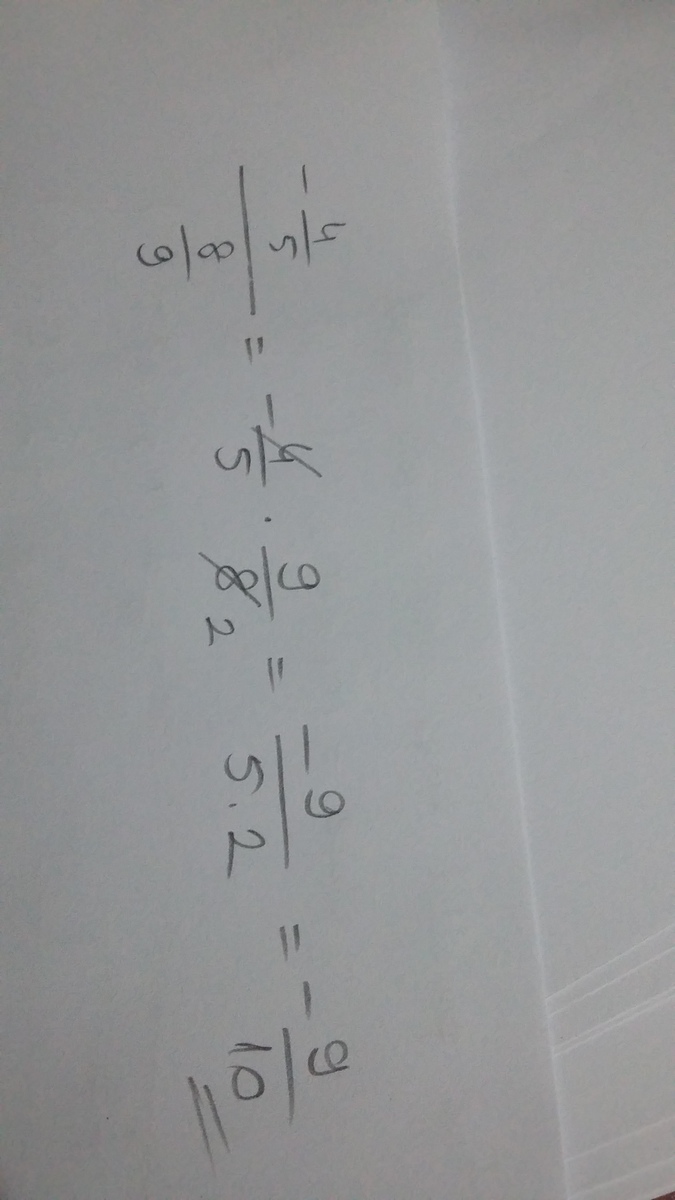 -4/5 / 8/9 = -4/5 · 9/8 2 = -9/5.2 = -9/10